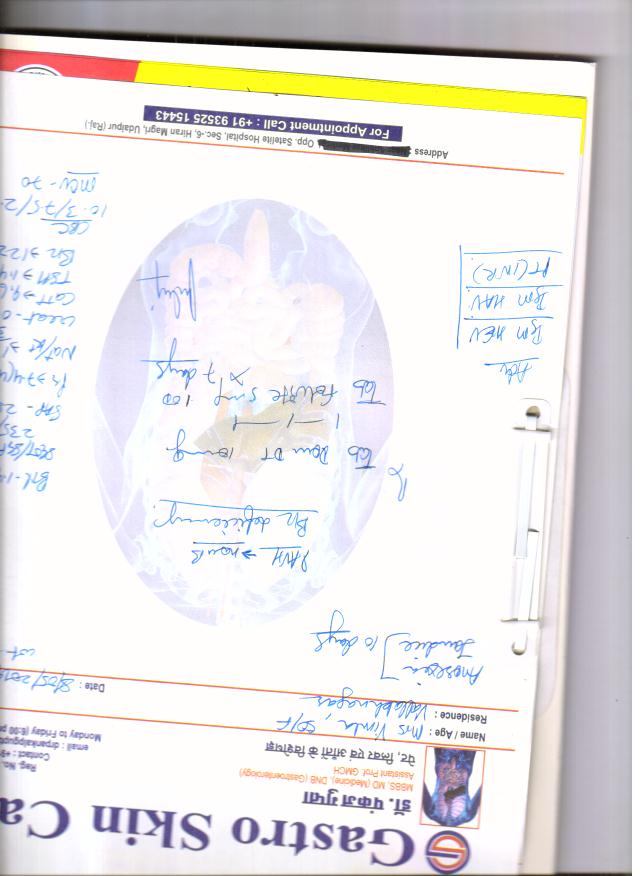 Gastro Skin Ca
डॉ. पंकज गुप्ता
MBBS, MD (Medicine), DNB (Gastroenterology)
Assistant Prof. GMCH
पेट, लिवर एवं आँतों के विशेषज्ञ
Reg. No.
Contact : +9
email : drpankajgupt
Monday to Friday (6:00 p
Name / Age : Mrs Vimla, 50/F
Residence : Vallabhnagar
Date : 8/05/201
wt -
Anorexia
Jaundice] 10 days
→ now B
B12 deficiency.
Rx
Tab Dom DT 10mg
1—1—1
Tab Folvite 5mg 100
x 7 days
Adv
Igm HEV
Igm HAV
PT(INR)
SGOT/SGPT
235/
SAP - 2
Na+/K+ →
Creat - 0
TSH → 1.4
B12 → 122
CBC
10.3/7.5/2
MCV - 70
Address :
Opp. Satelite Hospital, Sec.-6, Hiran Magri, Udaipur (Raj.)
For Appointment Call : +91 93525 15443